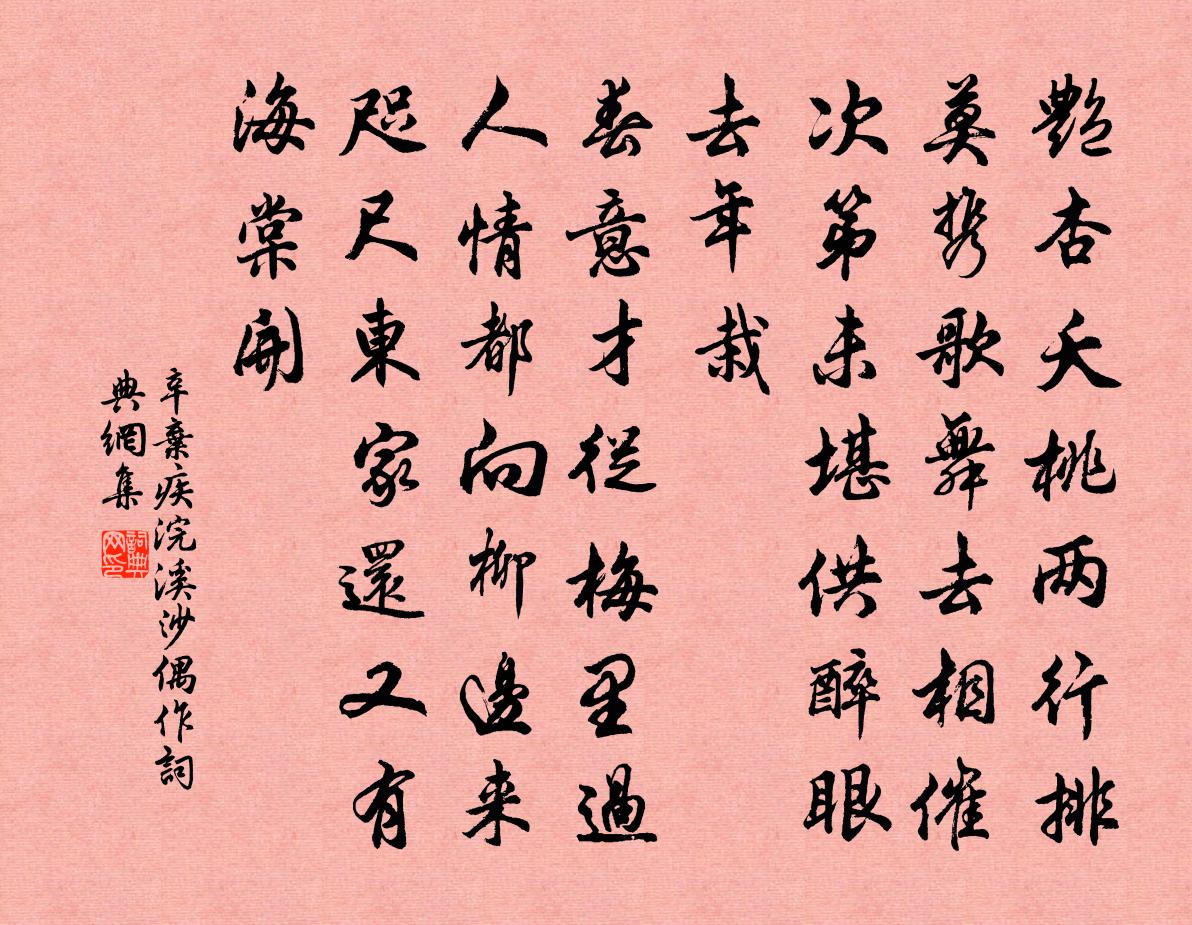 艷杏夭桃两行排
莫携歌舞去相催
次第未堪供醉眼
去年栽
春意才従梅里過
人情都向柳邊来
咫尺東家還又有
海棠開
辛棄疾浣溪沙偶作詞
典網集
詞典网印